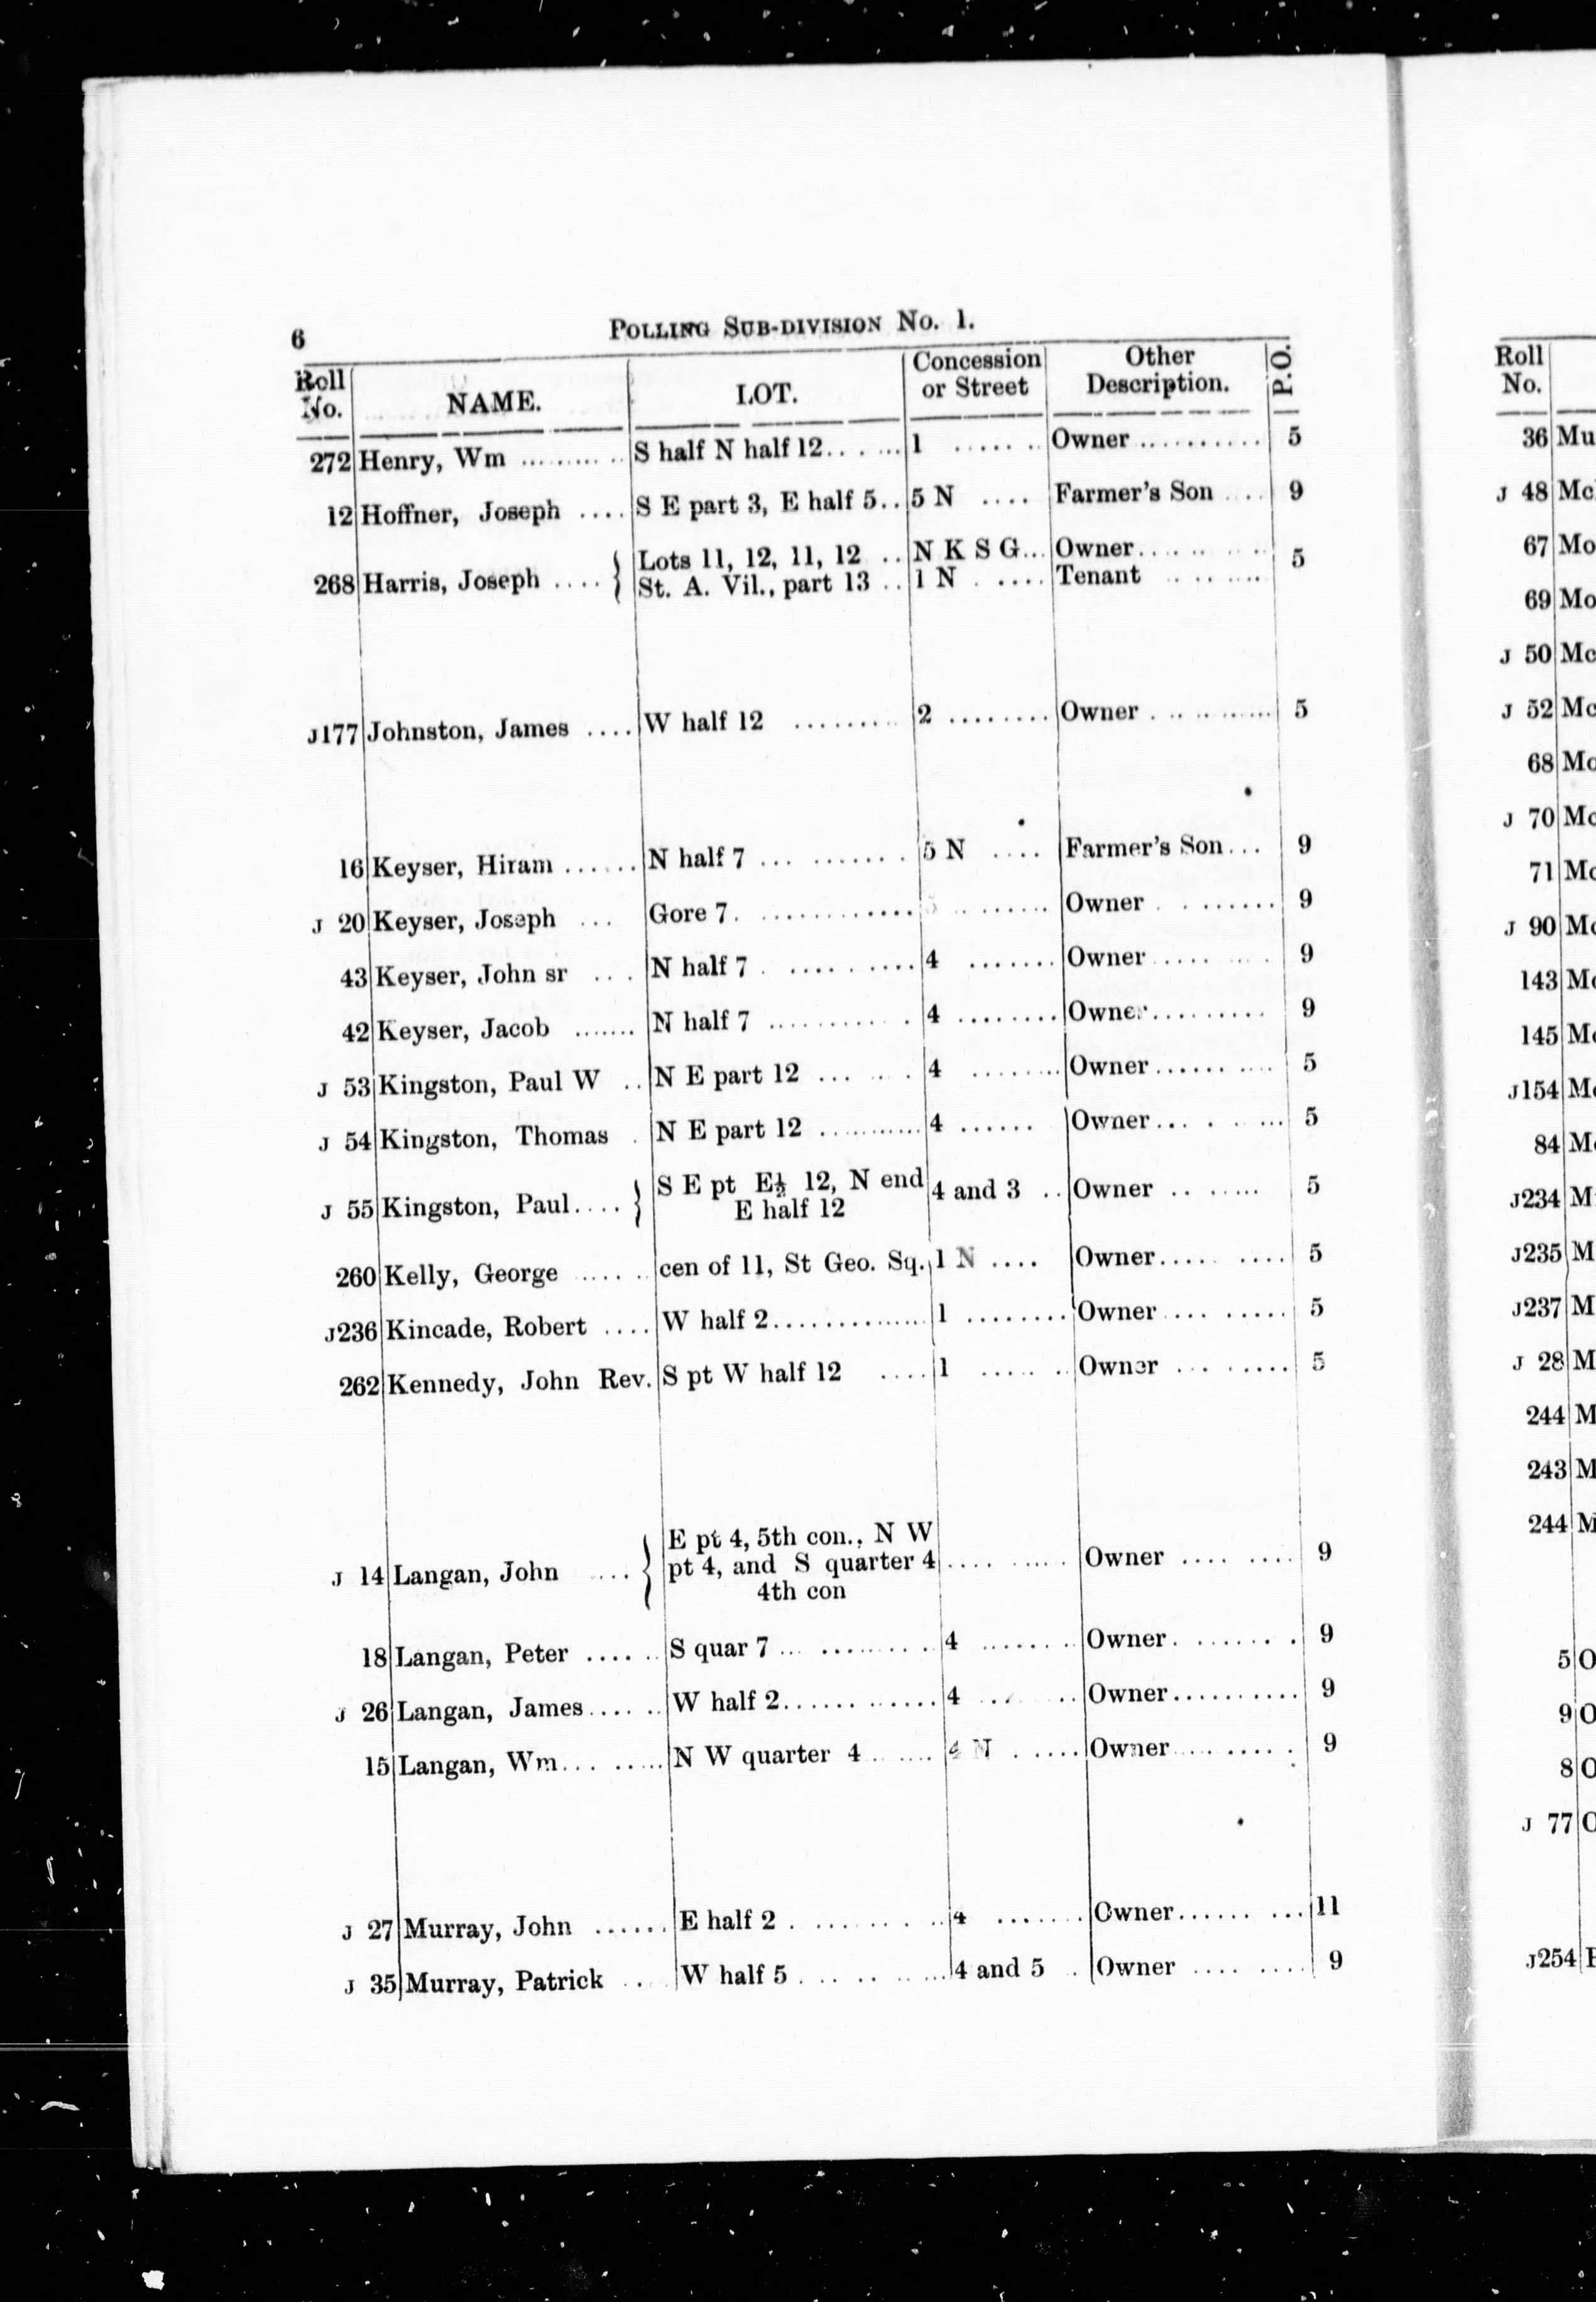 6 POLLING SUB-DIVISION No. 1.
Roll No. NAME. LOT. Concession or Street Other Description. P.O.
272 Henry, Wm ......... S half N half 12...... 1 ...... Owner .......... 5
12 Hoffner, Joseph .... S E part 3, E half 5.. 5 N .... Farmer's Son .... 9
268 Harris, Joseph .... { Lots 11, 12, 11, 12 .. N K S G... Owner......... 5
St. A. Vil., part 13 .. 1 N ..... Tenant ........
J177 Johnston, James .... W half 12 ......... 2 ........ Owner .......... 5
16 Keyser, Hiram ...... N half 7 ........... 5 N .... Farmer's Son... 9
J 20 Keyser, Joseph ... Gore 7............. ........ Owner ......... 9
43 Keyser, John sr .... N half 7 ........... 4 ....... Owner ......... 9
42 Keyser, Jacob ....... N half 7 ............ 4 ........ Owner......... 9
J 53 Kingston, Paul W .. N E part 12 ........ 4 ........ Owner.......... 5
J 54 Kingston, Thomas . N E part 12 ........... 4 ...... Owner........ 5
J 55 Kingston, Paul.... } S E pt E½ 12, N end 4 and 3 .. Owner ....... 5
E half 12
260 Kelly, George ...... cen of 11, St Geo. Sq. 1 N .... Owner......... 5
J236 Kincade, Robert .... W half 2............. 1 ........ Owner ......... 5
262 Kennedy, John Rev. S pt W half 12 .... 1 ....... Owner ......... 5
J 14 Langan, John .... { E pt 4, 5th con., N W
pt 4, and S quarter 4 ......... Owner ........ 9
4th con
18 Langan, Peter ...... S quar 7 ........... 4 ........ Owner......... 9
J 26 Langan, James...... W half 2............ 4 ..... Owner.......... 9
15 Langan, Wm........ N W quarter 4 ...... 4 N ..... Owner......... 9
J 27 Murray, John ...... E half 2 .......... 4 ....... Owner......... 11
J 35 Murray, Patrick .... W half 5 .......... 4 and 5 . Owner ........ 9
Roll No.
36 Mu
J 48 Mc
67 Mo
69 Mo
J 50 Mc
J 52 Mc
68 Mc
J 70 Mc
71 Mc
J 90 Mc
143 Mc
145 M
J154 M
84 M
J234 M
J235 M
J237 M
J 28 M
244 M
243 M
244 M
5 O
9 O
8 O
J 77 O
J254